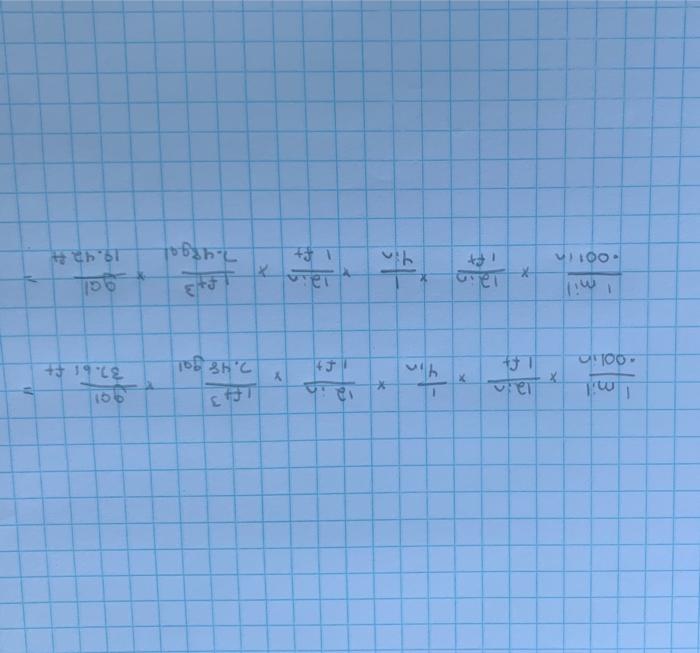 1 mil/.001in x 12in/1 ft x 1/4in x 12 in/1 ft x 1ft3/7.48 gal x gal/37.61 ft =
1 mil/.001in x 12in/1 ft x 1/4in x 12in/1 ft x 1ft3/7.48gal x gal/19.42 ft =